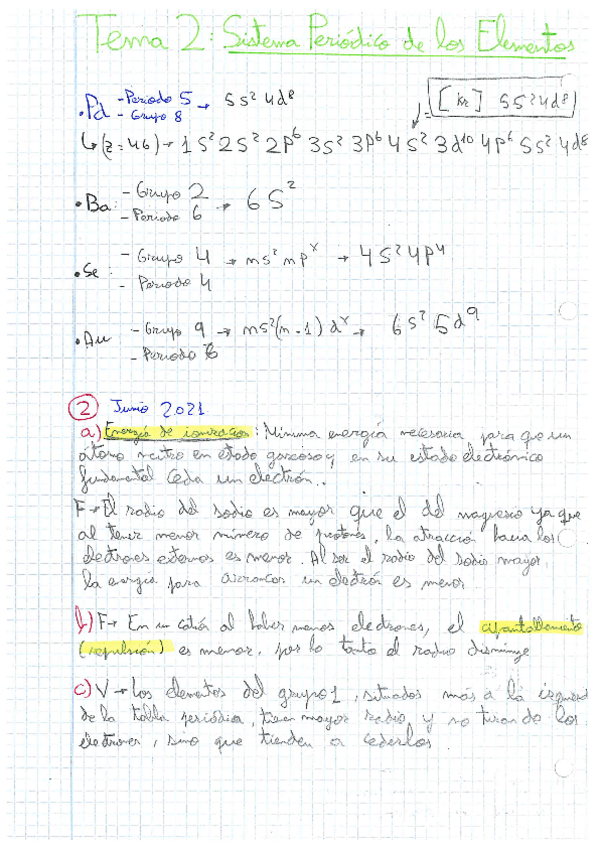 Tema 2: Sistema Periódico de los Elementos
• Pd - Periodo 5 → 5s² 4d⁸
- Grupo 8
[Kr] 5s² 4d⁸
↳ (z=46) → 1s² 2s² 2p⁶ 3s² 3p⁶ 4s² 3d¹⁰ 4p⁶ 5s² 4d⁸
• Ba: - Grupo 2 → 6s²
- Periodo 6
• Se: - Grupo 4 → ns² npˣ → 4s² 4p⁴
- Periodo 4
• Au - Grupo 9 → ns² (n-1) dˣ → 6s² 5d⁹
- Periodo 6
② Junio 2021
a) Energía de ionización: Mínima energía necesaria para que un
átomo neutro en estado gaseoso y en su estado electrónico
fundamental ceda un electrón.
F → El radio del sodio es mayor que el del magnesio ya que
al tener menor número de protones, la atracción hacia los
electrones externos es menor. Al ser el radio del sodio mayor,
la energía para arrancar un electrón es menor
b) F → En un catión al haber menos electrones, el apantallamiento
(repulsión) es menor, por lo tanto el radio disminuye
c) V → Los elementos del grupo 1, situados más a la izquierd
de la tabla periódica, tienen mayor radio y no tiran de los
electrones, sino que tienden a cederlos